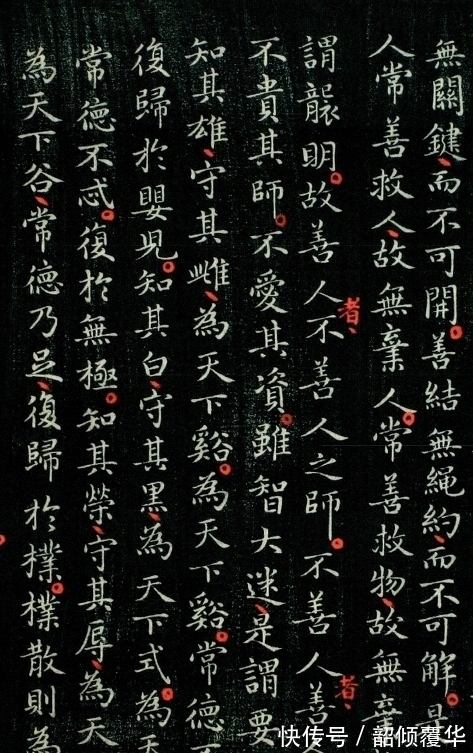 無關鍵、而不可開。善結無繩約、而不可解。是
人常善救人、故無棄人。常善救物、故無棄
謂襲明。故善人者、不善人之師。不善人者、善
不貴其師。不愛其資。雖智大迷、是謂要
知其雄、守其雌、為天下谿。為天下谿。常德
復歸於嬰兒。知其白、守其黑、為天下式。為
常德不忒。復於無極。知其榮、守其辱、為天
為天下谷、常德乃足、復歸於樸。樸散則為
快传号 / 韶倾覆华